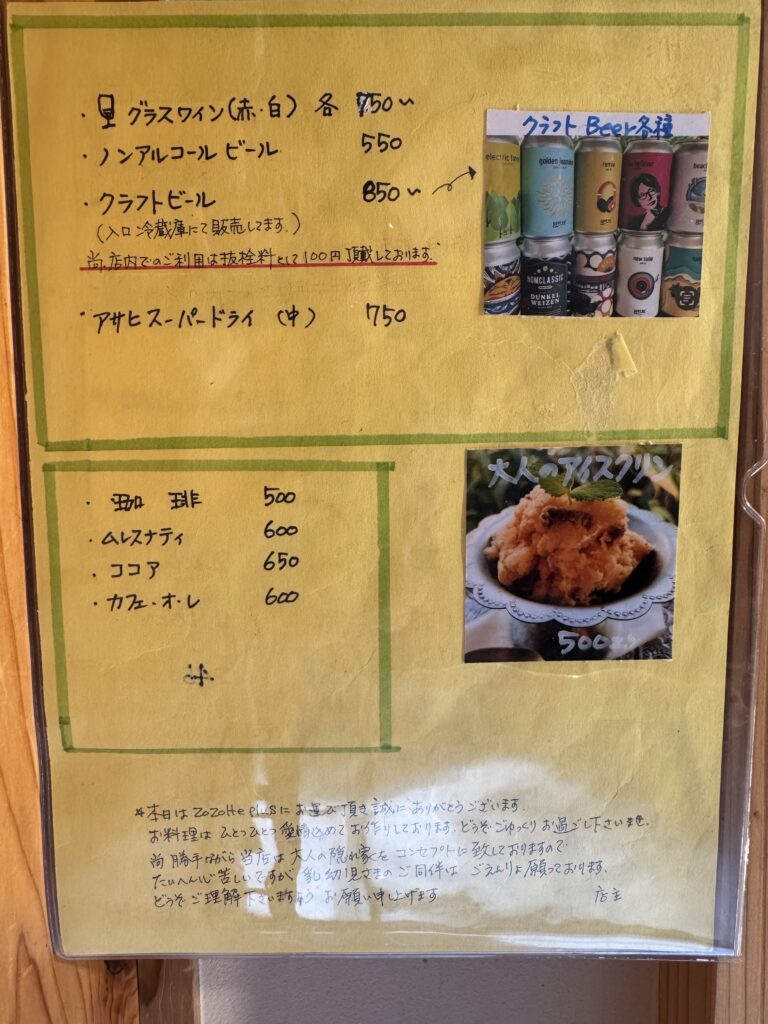 ・グラスワイン(赤・白) 各 750〜
・ノンアルコールビール 550
・クラフトビール 850〜
(入口冷蔵庫にて販売してます。)
尚、店内でのご利用は抜栓料として100円頂戴しております。
・アサヒスーパードライ (中) 750
クラフト Beer各種
golden
HOMCLASSIC
DUNKEL
WEIZEN
new tale
・珈琲 500
・ムレスナティ 600
・ココア 650
・カフェ・オ・レ 600
大人のアイスクリン
500
*本日はZoZoHe plusにお運び頂き誠にありがとうございます。
お料理はひとつひとつ愛情込めてお作りしております。どうぞごゆっくりお過ごし下さいませ。
尚 勝手ながら当店は大人の隠れ家をコンセプトに致しておりますので
たいへん心苦しいですが乳幼児さまのご同伴はごえんりょ願っております。
どうぞご理解下さいますようお願い申し上げます 店主